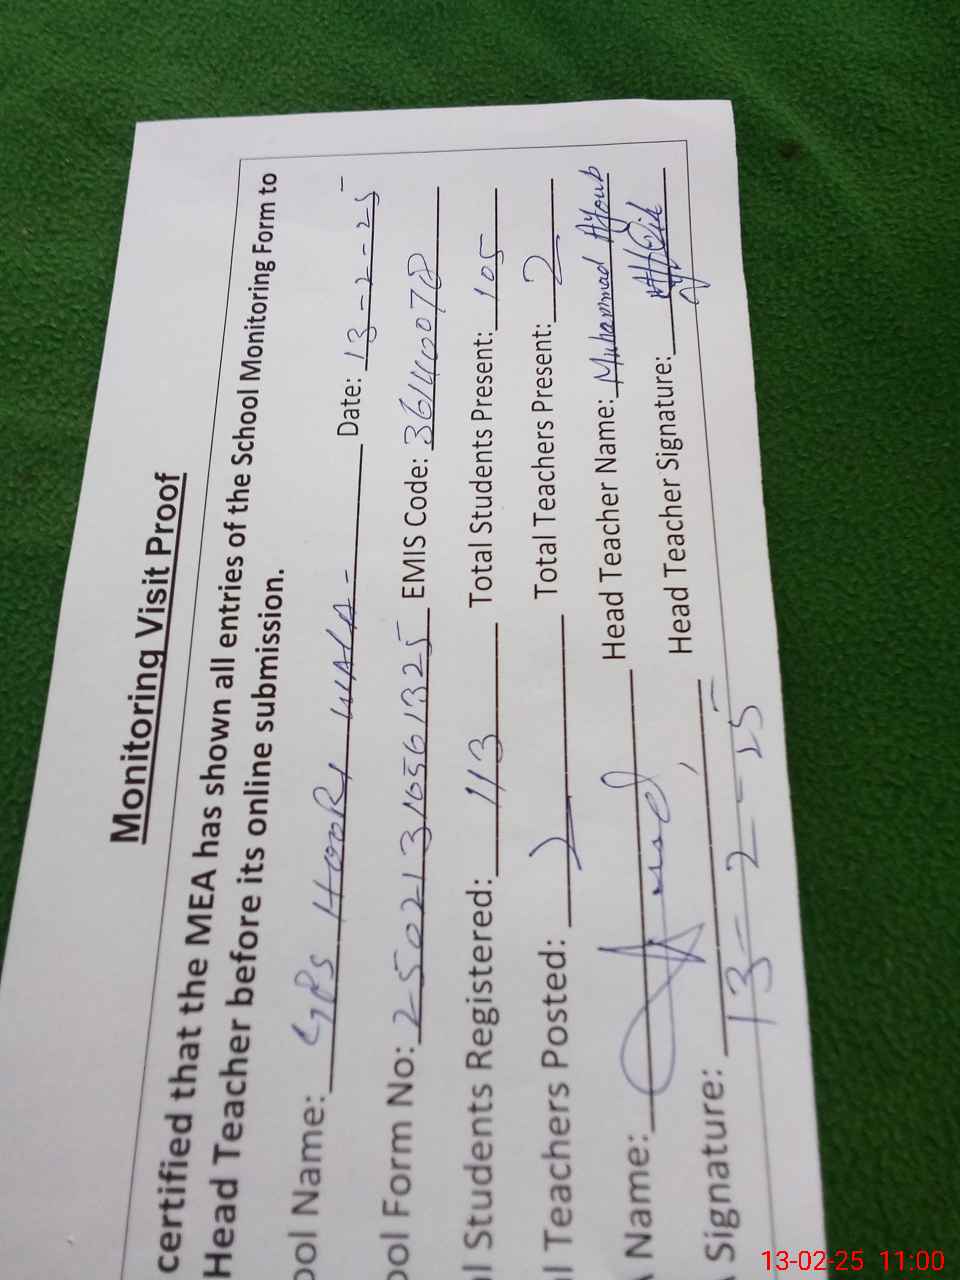 Monitoring Visit Proof
certified that the MEA has shown all entries of the School Monitoring Form to
Head Teacher before its online submission.
ool Name: GPS HOORI WALA- Date: 13-2-25-
ool Form No: 25021316561325 EMIS Code: 36140078
l Students Registered: 113 Total Students Present: 105
l Teachers Posted: 2 Total Teachers Present: 2
Name: Head Teacher Name: Muhammad Ayoub
Signature: Head Teacher Signature:
13-2-25-
13-02-25 11:00